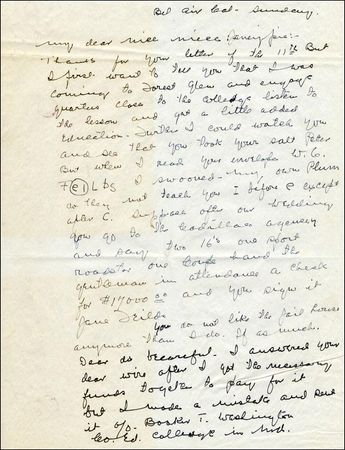 Bel Air Cal - Sunday.
My dear nice
Thanks for your letter of the 11th But
I first want to tell you that I was
coming to Forest Glen and engage
quarters close to the colledge listen to
the lesson and get a little added
education. Further I could watch you
and see that you took your salt Peter
But when I read your envelope W. C.
F(ei)Lds I swooned - my own Plum
do they not teach you I before e except
after C. Suppose after our wedding
you go to the Cadillac agency
and say two 16's one sport
roadster one hand the
gentleman in attendance a check
for $17000 00 and you sign it
Jane Feilds
you do not like the jail house
anymore than I do. If as much.
Dear do becareful. I answered your
dear wire after I got the necessary
funds together to pay for it
but I made a mistake and sent
it c/o. Booker T. Washington
Co. Ed. Colledge in Md.